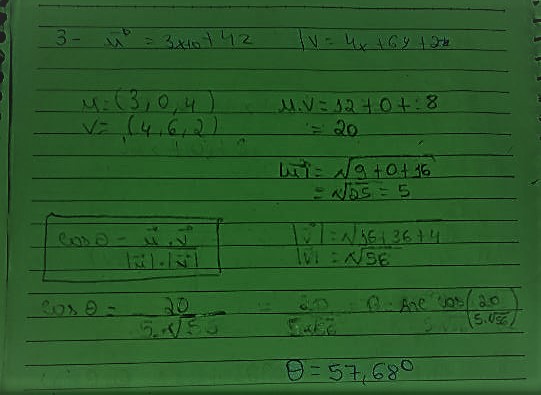 3- u = 3x+0+4z  V = 4x+6y+2z
u=(3, 0, 4)  u.v = 12+0+8
v= (4, 6, 2)  = 20
|u| = √9+0+16
= √25 = 5
cos θ = u . v / |u| . |v|  |v| = √16+36+4
|v| = √56
cos θ = 20 / 5.√56 = 20 / 5√56  θ = Arc cos(20 / 5.√56)
θ = 57,68°